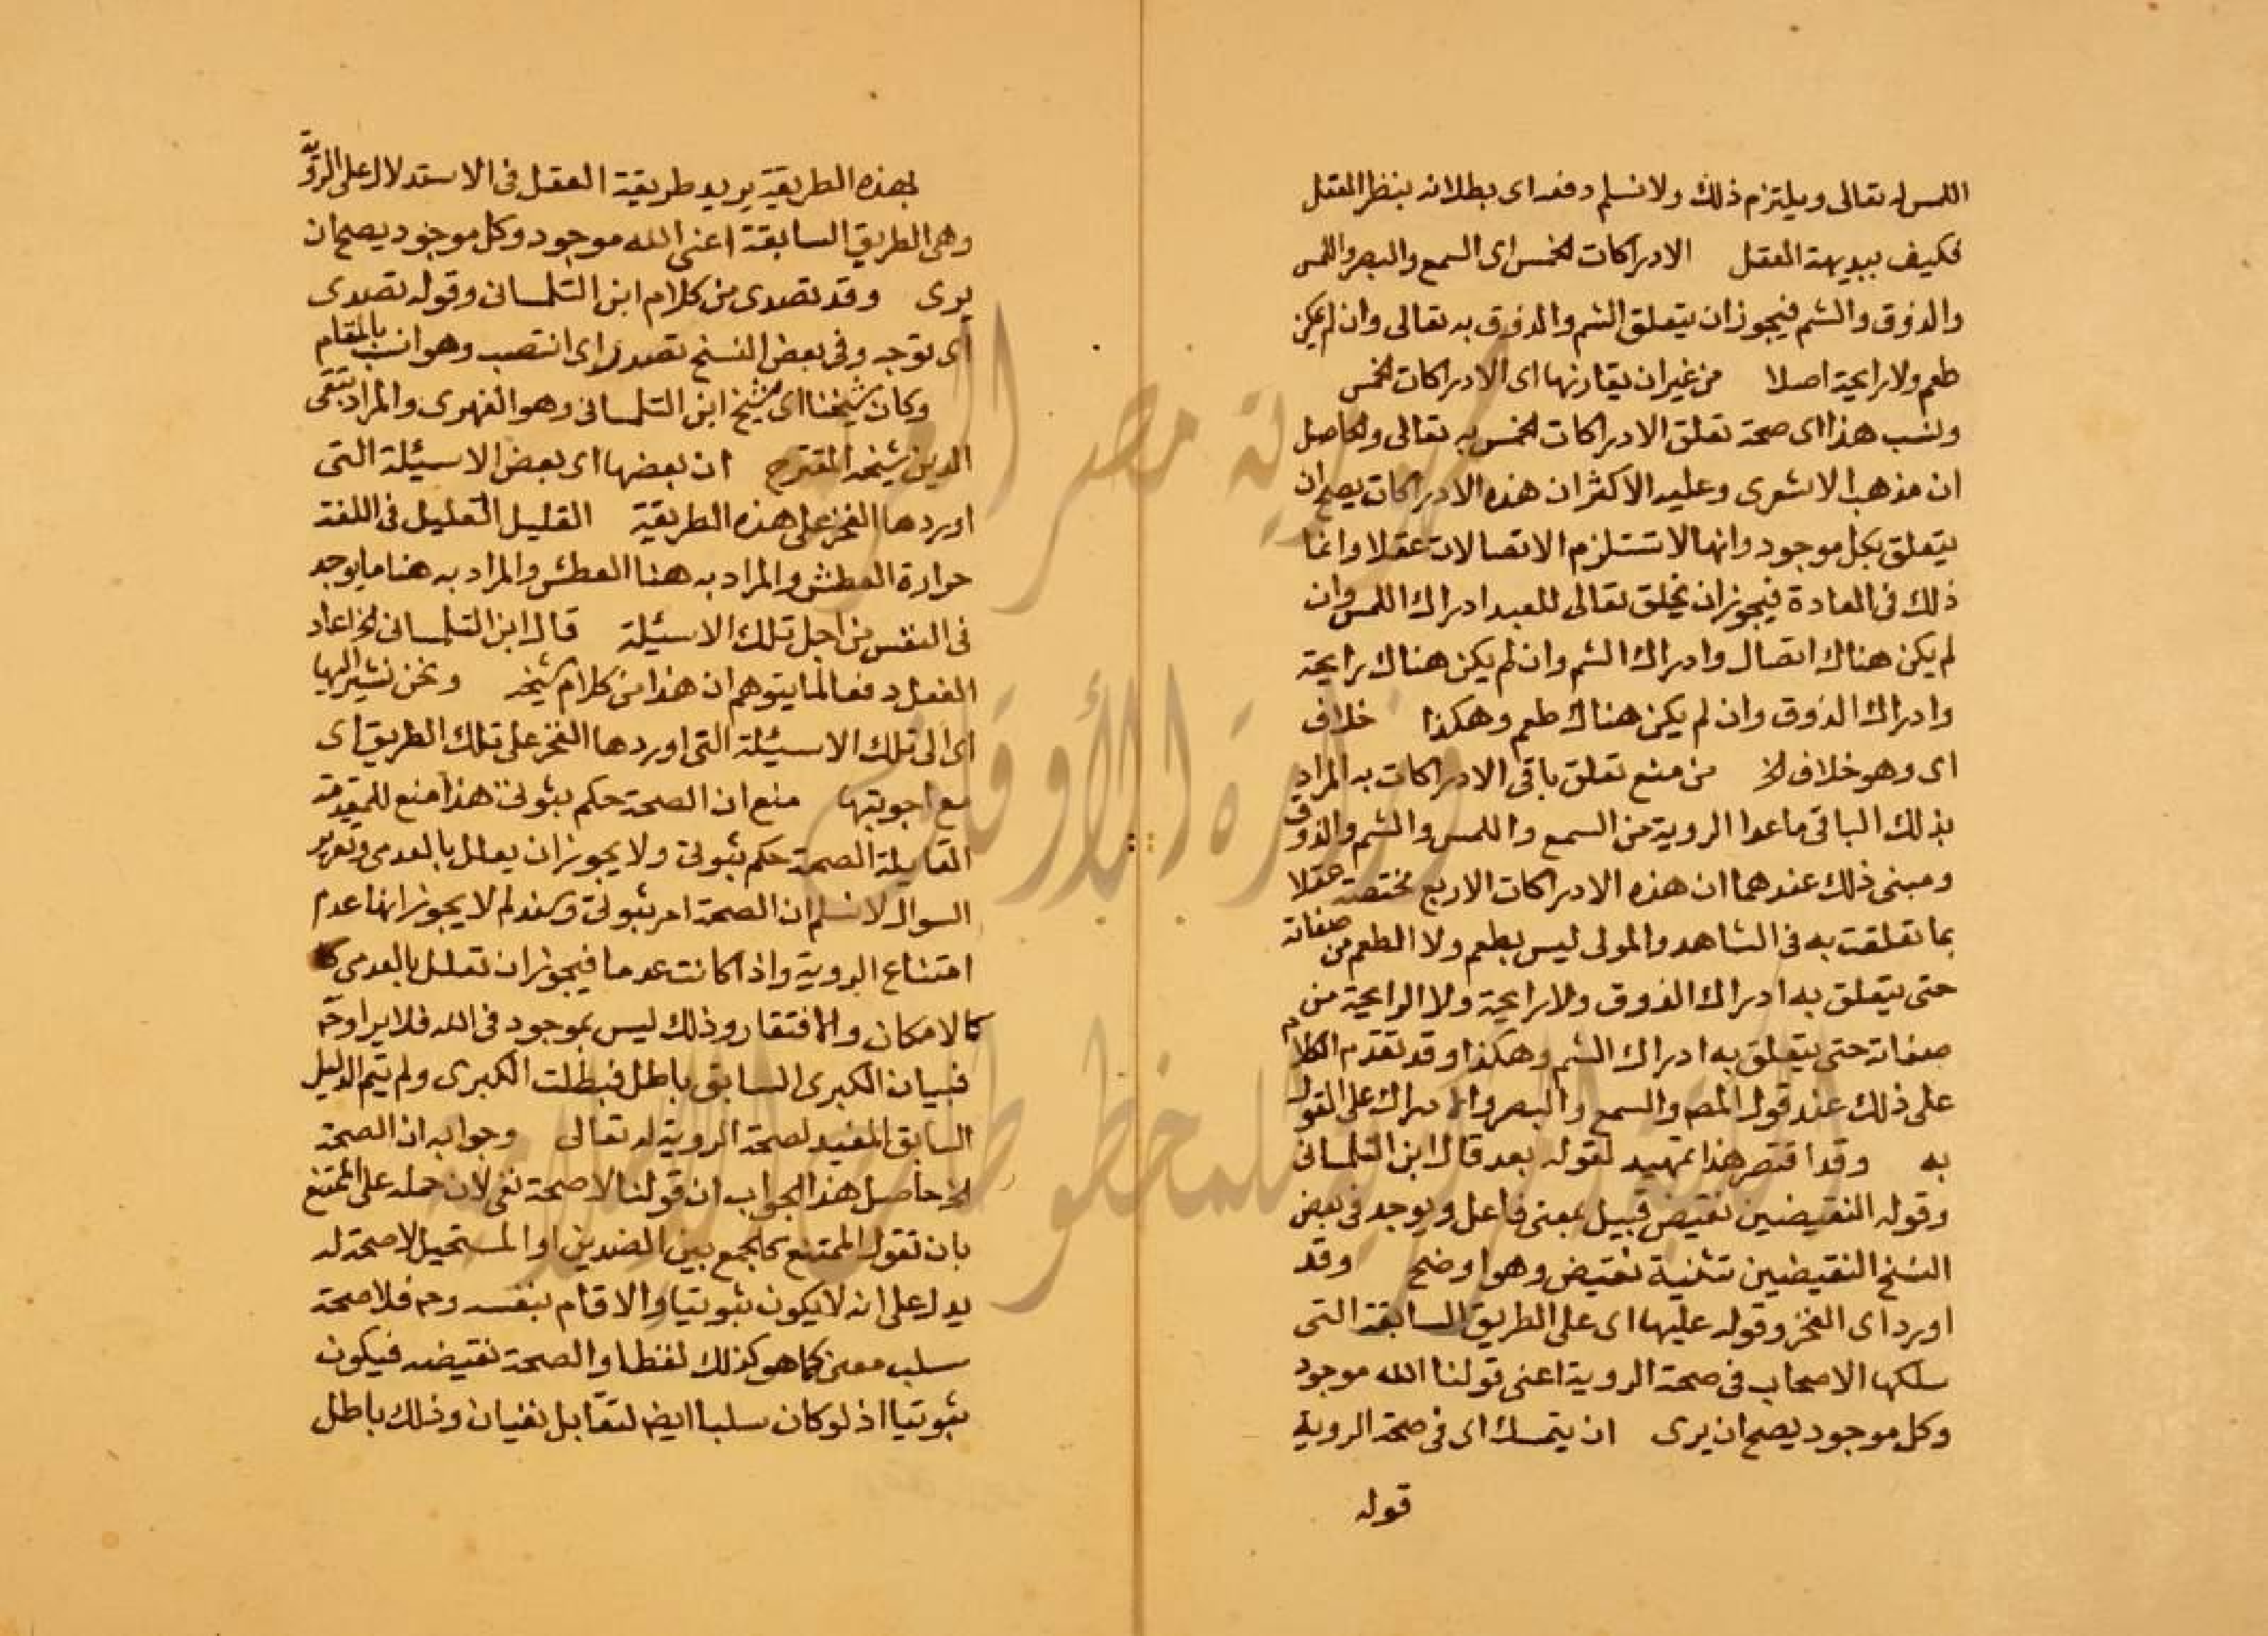 اللمس له تعالى ويلتزم ذلك ولا نسلم دفعه اى بطلانه بنظر العقل
فكيف ببديهة العقل الادراكات الخمس اى السمع والبصر واللمس
والذوق والشم فيجوز ان يتعلق الشم والذوق به تعالى وان لم يكن
طعم ولا رايحة اصلا من غير ان يقارنها اى الادراكات الخمس
ونسب هذا اى صحة تعلق الادراكات الخمس به تعالى والحاصل
ان مذهب الاشعرى وعليه الاكثر ان هذه الادراكات يصح ان
يتعلق بكل موجود وانها لا تستلزم الاتصالات عقلا وانما
ذلك فى العادة فيجوز ان يخلق تعالى للعبد ادراك اللمس وان
لم يكن هناك اتصال وادراك الشم وان لم يكن هناك رايحة
وادراك الذوق وان لم يكن هناك طعم وهكذا خلاف
اى وهو خلاف الخ من منع تعلق باقى الادراكات به المراد
بذلك الباقى ما عدا الروية من السمع واللمس والشم والذوق
ومبنى ذلك عندهما ان هذه الادراكات الاربع مختصة عقلا
بما تعلقت به فى الشاهد والمولى ليس بطعم ولا الطعم من صفاته
حتى يتعلق به ادراك الذوق ولا رايحة ولا الرايحة من
صفاته حتى يتعلق به ادراك الشم وهكذا وقد تقدم الكلام
على ذلك عند قول المصـ والسمع والبصر والادراك على القول
به وقد اقتصر هذا تمهيد لقوله بعد قال ابن التلمسانى
وقوله النقيضين نقيض قبيل بمعنى فاعل ويوجد فى بعض
النسخ النقيضيين تثنية نقيض وهو اوضح وقد
اورد اى الفخر وقوله عليها اى على الطريق السابقة التى
سلكها الاصحاب فى صحة الروية اعنى قولنا الله موجود
وكل موجود يصح ان يرى ان يتمسك اى فى صحة الروية
قوله
بهذه الطريقة يريد طريقة العقل فى الاستدلال على الروية
وهى الطريق السابقة اعنى الله موجود وكل موجود يصح ان
يرى وقد تصدى من كلام ابن التلمسانى وقوله تصدى
اى توجه وفى بعض النسخ تصدر اى انتصب وهو انسب بالمقام
وكان شيخنا اى شيخ ابن التلمسانى وهو الفهرى والمراد بتقى
الدين شيخه المقترح ان بعضها اى بعض الاسئلة التى
اوردها الفخر على هذه الطريقة الغليل الغليل فى اللغة
حرارة العطش والمراد به هنا العطش والمراد به هنا ما يوجد
فى النفس من اجل تلك الاسئلة قال ابن التلمسانى الخ اعاد
الفعل دفعا لما يتوهم ان هذا من كلام شيخه ونحن نشير اليها
اى الى تلك الاسئلة التى اوردها الفخر على تلك الطريق اى
مع اجوبتها منع ان الصحة حكم ثبوتى هذا منع للمقدمة
القايلة الصحة حكم ثبوتى ولا يجوز ان يعلل بالعدمى وتقرير
السوال لا نسلم ان الصحة امر ثبوتى وسند لم لا يجوز انها عدم
امتناع الروية واذا كانت عدما فيجوز ان تعلل بالعدمى
كالامكان والافتقار وذلك ليس بموجود فى الله فلا يرا وحـ
فبيان الكبرى السابق باطل فبطلت الكبرى ولم يتم الدليل
السابق المفيد لصحة الروية له تعالى وجوابه ان الصحة
الخ حاصل هذا الجواب ان قولنا لا صحة نفى لان حمله على الممتنع
بان تقول الممتنع كالجمع بين الضدين او المستحيل لا صحة له
يدل على انه لا يكون ثبوتيا والا قام بنفسه وحـ فلا صحة
سلب معنى كما هو كذلك لفظا والصحة نقيضه فيكون
ثبوتيا اذ لو كان سلبا ايضـ لتقابل نفيان وذلك باطل